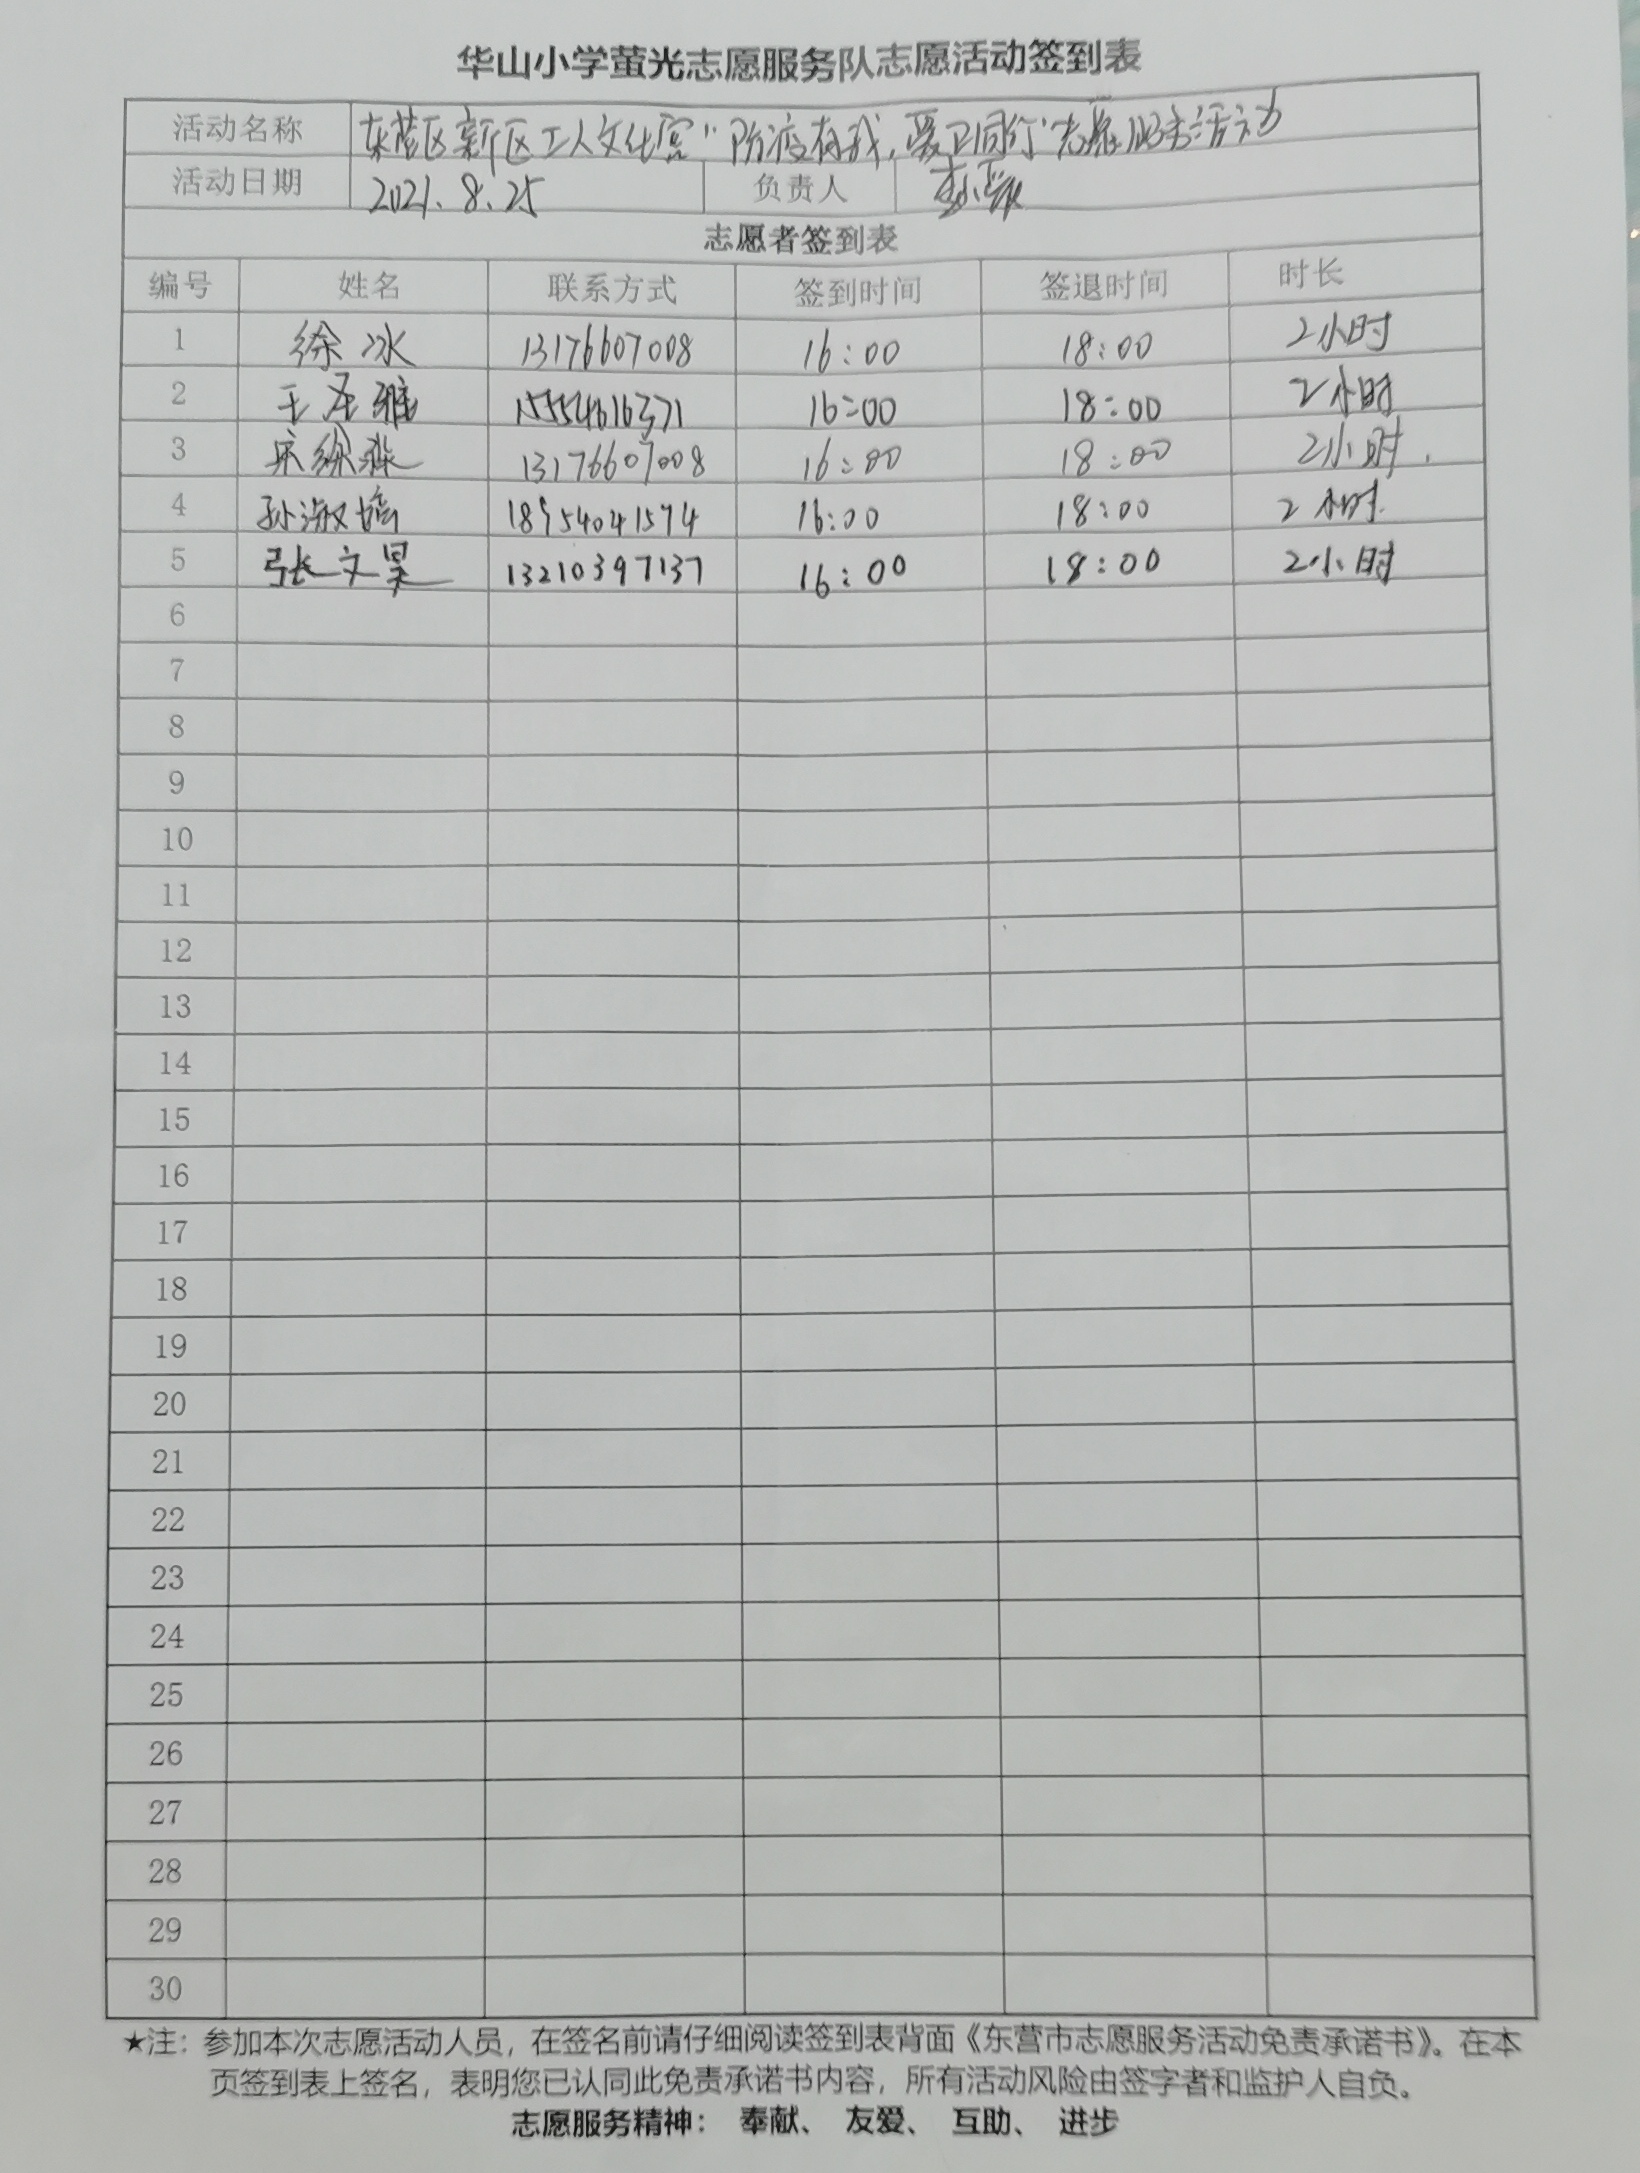 华山小学萤光志愿服务队志愿活动签到表
活动名称 东营区新区工人文化宫“防疫有我,爱卫同行”志愿服务活动
活动日期 2021.8.25 负责人
志愿者签到表
编号 姓名 联系方式 签到时间 签退时间 时长
1 徐冰 13176607008 16:00 18:00 2小时
2 王圣雅 15554616371 16:00 18:00 2小时
3 宋徐淼 13176607008 16:00 18:00 2小时.
4 孙淑 18954041574 16:00 18:00 2小时.
5 张文昊 13210397137 16:00 18:00 2小时
6
7
8
9
10
11
12
13
14
15
16
17
18
19
20
21
22
23
24
25
26
27
28
29
30
★注：参加本次志愿活动人员，在签名前请仔细阅读签到表背面《东营市志愿服务活动免责承诺书》。在本
页签到表上签名，表明您已认同此免责承诺书内容，所有活动风险由签字者和监护人自负。
志愿服务精神： 奉献、 友爱、 互助、 进步